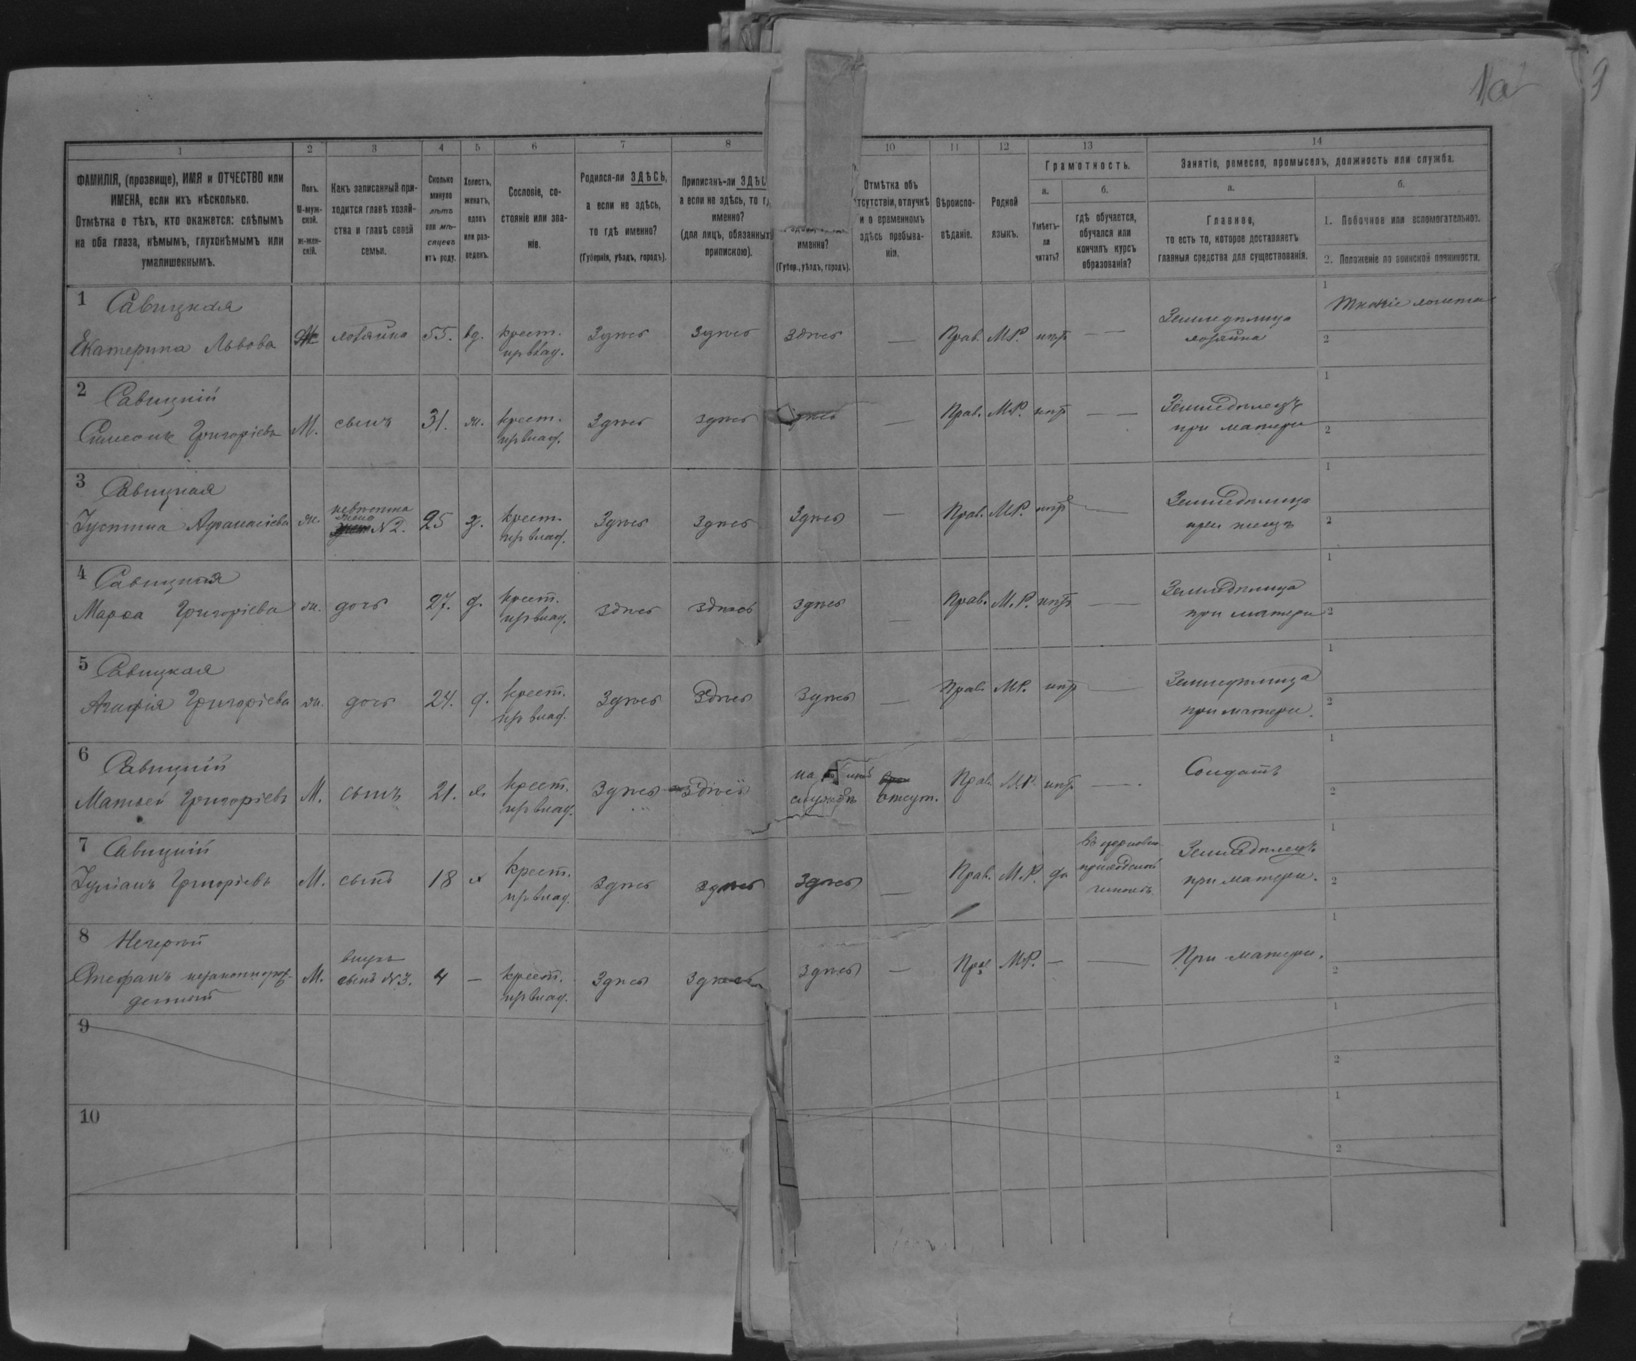 1а
9
1 2 3 4 5 6 7 8 10 11 12 13 14
ФАМИЛІЯ, (прозвище), ИМЯ и ОТЧЕСТВО или
ИМЕНА, если ихъ нѣсколько.
Отмѣтка о тѣхъ, кто окажется: слѣпымъ
на оба глаза, нѣмымъ, глухонѣмымъ или
умалишеннымъ.
Полъ.
М-муж-
ской.
ж-жен-
скій.
Какъ записанный при-
ходится главѣ хозяй-
ства и главѣ своей
семьи.
Сколько
минуло
лѣтъ
или мѣ-
сяцевъ
отъ роду.
Холостъ,
женатъ,
вдовъ
или раз-
веденъ.
Сословіе, со-
стояніе или зва-
ніе.
Родился-ли ЗДѢСЬ,
а если не здѣсь,
то гдѣ именно?
(Губернія, уѣздъ, городъ).
Приписанъ-ли ЗДѢС
а если не здѣсь, то г
именно?
(для лицъ, обязанныхъ
припискою).
именно?
(Губер., уѣздъ, городъ).
Отмѣтка объ
тсутствіи, отлучкѣ
и о временномъ
здѣсь пребыва-
ніи.
Вѣроиспо-
вѣданіе.
Родной
языкъ.
Грамотность.
а.
Умѣетъ-
ли
читать?
б.
гдѣ обучается,
обучался или
кончилъ курсъ
образованія?
Занятіе, ремесло, промыселъ, должность или служба.
а.
Главное,
то есть то, которое доставляетъ
главныя средства для существованія.
б.
1. Побочное или вспомогательное.
2. Положеніе по воинской повинности.
1 Савицкая
Екатерина Львова Ж хозяйка 55. вд. крест. Здѣсь Здѣсь Здѣсь — Прав. М.Р. нѣтъ — Земледѣлица
хозяйка
1
2
2 Савицкій
Симеонъ Григоріевъ М. сынъ 31. ж. крест. Здѣсь здѣсь Прав. М.Р. нѣтъ — — Земледѣлецъ
при матери
1
2
3 Савицкая
Іустина Афанасіева ж. невѣстка
жена №2. 25 крест. Здѣсь Здѣсь Здѣсь Прав. М.Р. нѣтъ — Земледѣлица
1
2
4 Савицкая
Марѳа Григоріева ж. дочь 27. д. крест. здѣсь здѣсь здѣсь — Прав. М.Р. нѣтъ — Земледѣлица
при матери
1
2
5 Савицкая
Агафія Григоріева ж. дочь 24. д. крест. Здѣсь Здѣсь Здѣсь — Прав. М.Р. нѣтъ — Земледѣлица
при матери.
1
2
6 Савицкій
Матѳей Григоріевъ М. сынъ 21. х. крест. Здѣсь Здѣсь на
службѣ отсут. Прав. М.Р. нѣтъ — Солдатъ
1
2
7 Савицкій
Іуліанъ Григоріевъ М. сынъ 18 х крест. здѣсь здѣсь Здѣсь — Прав. М.Р. да въ церковно
приходской
Земледѣлецъ
при матери.
1
2
8 Нечерпій
Стефанъ незаконнорож-
денный М. внукъ
сынъ №3. 4 — крест. Здѣсь Здѣсь здѣсь — Прав М.Р. — — При матери.
1
2
9
1
2
10
1
2